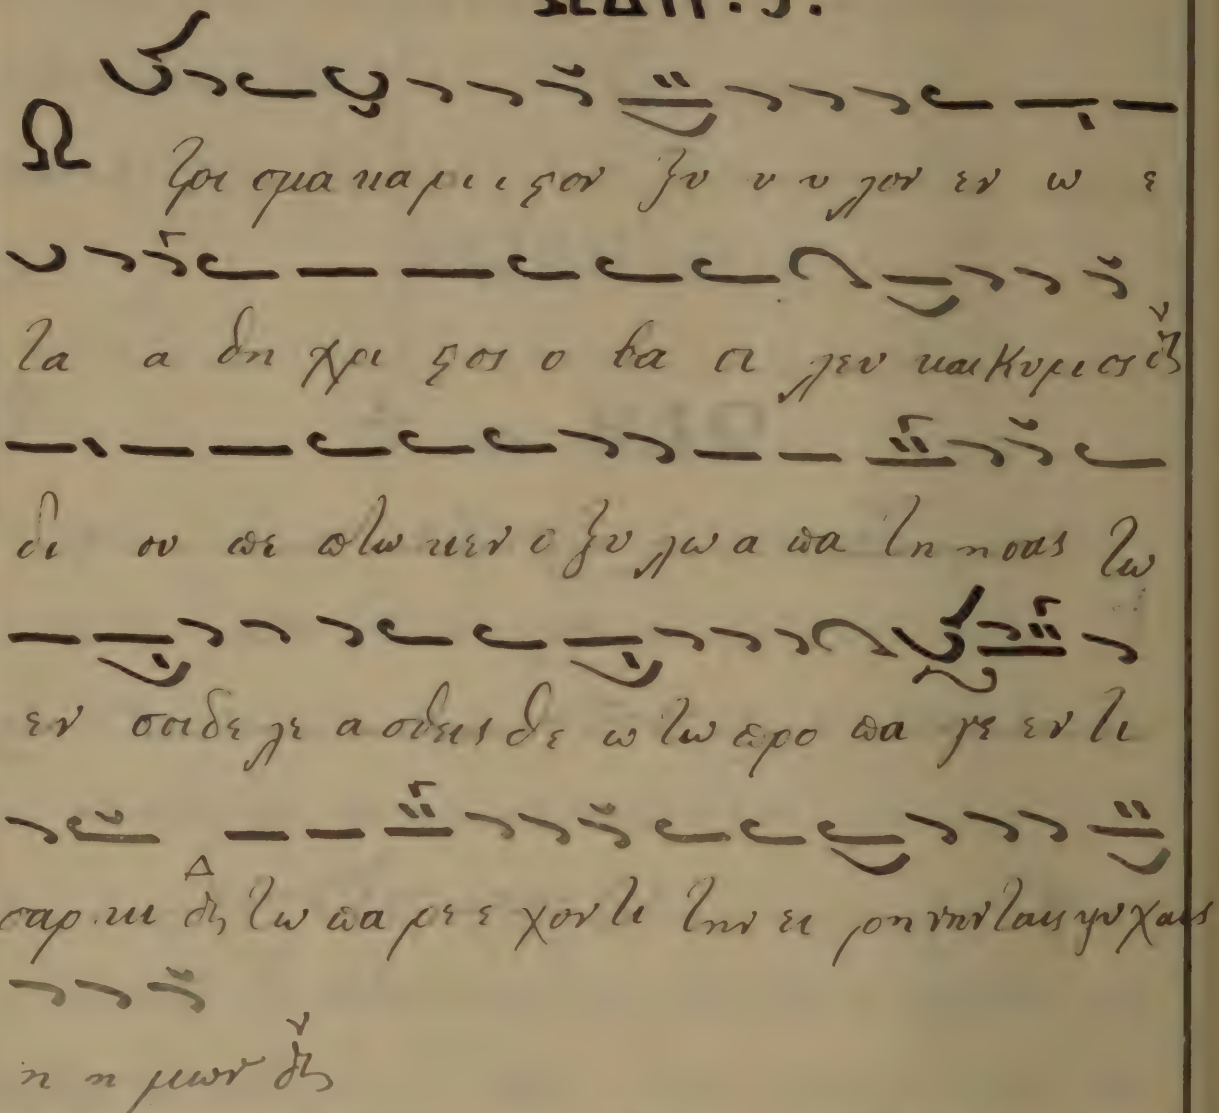 ΩΔΗ. ϛ.
Ω τρι σμα κα ρι ι ϛον ξυ υ υ λον εν ω ε
τα α θη χρι ϛος ο βα σι λευ και Κυριος
δι ου πε πτω κεν ο ξυ λω α πα τη η σας τω
εν σοι δε λε α σθεις θε ω τω προ πα γε εν τι
σαρ κι τω πα ρε ε χον τι την ει ρη νην ταις ψυ χαις
η η μων